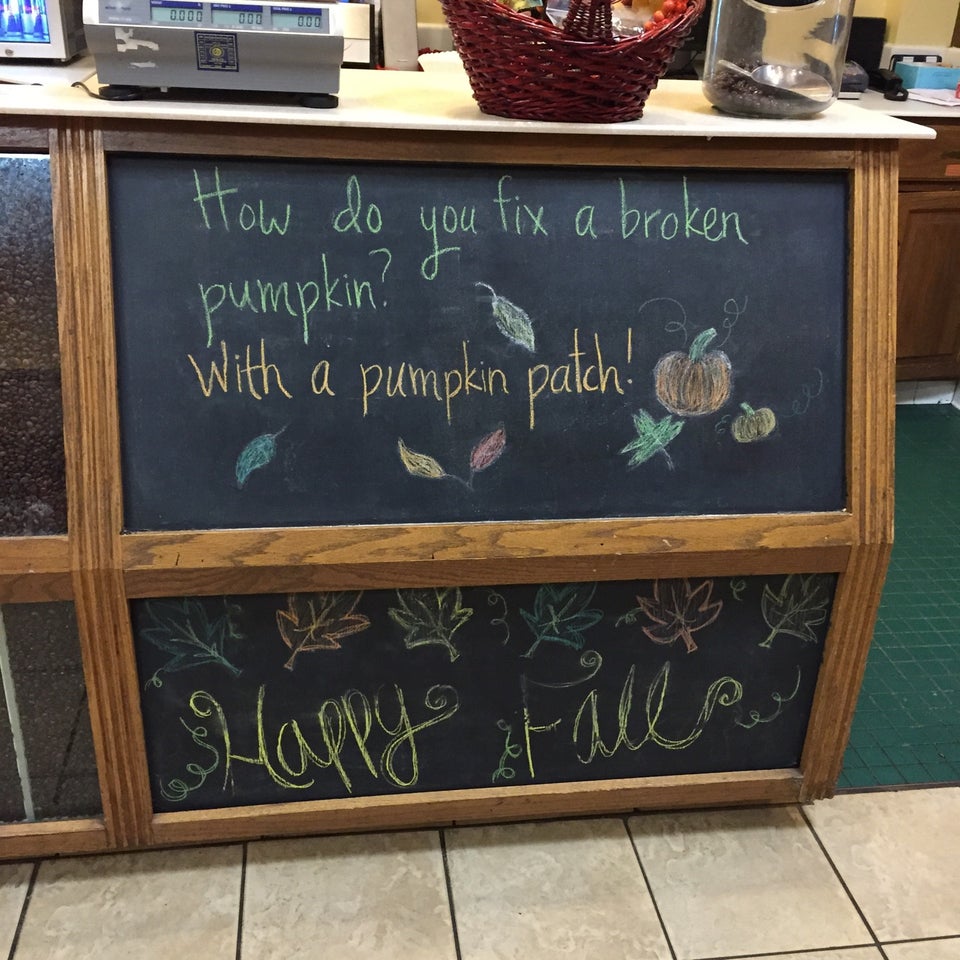 0.000 0.00 0.00
How do you fix a broken
pumpkin?
With a pumpkin patch!
Happy Fall